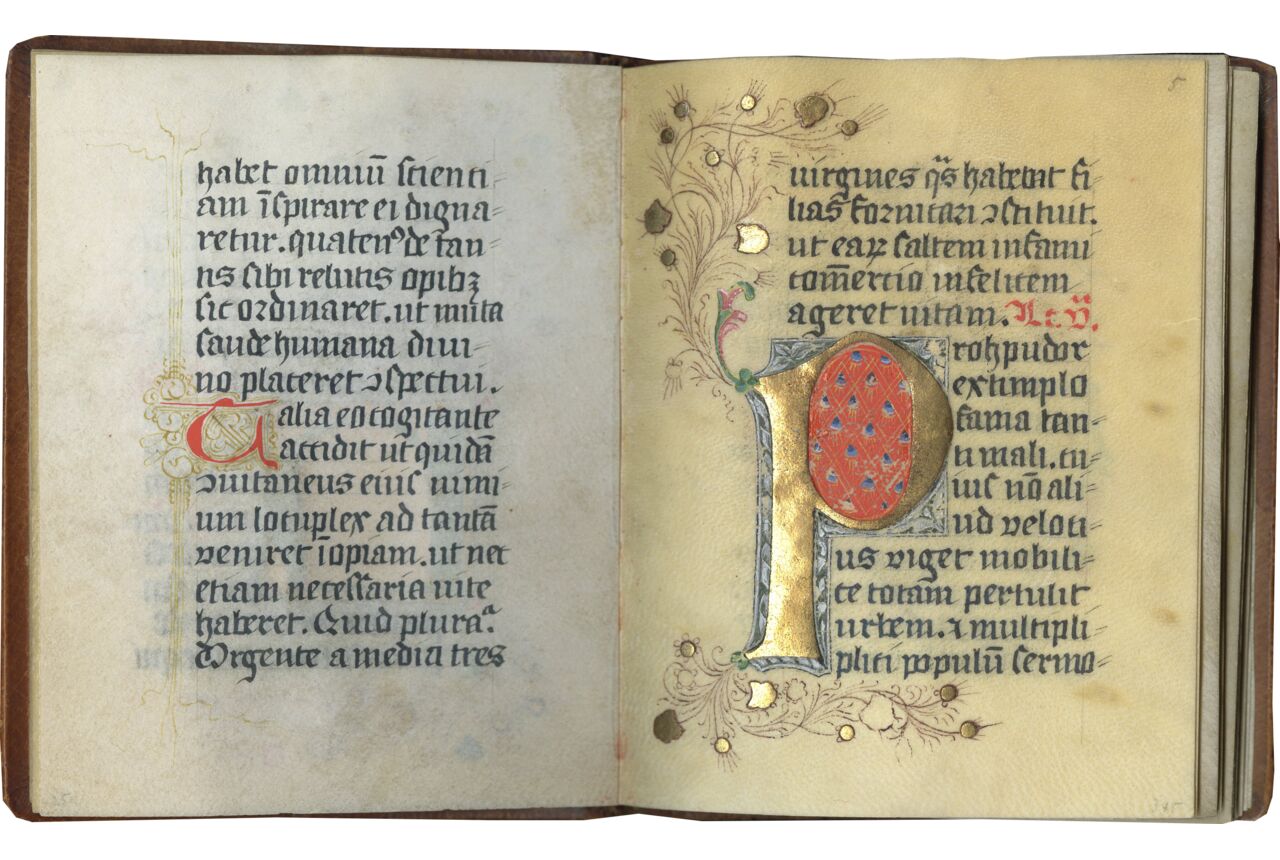 habet omniū scienti
am īspirare ei digna⸗
retur. quatenꝰ de tan⸗
tis sibi relictis opibꝫ
sic ordinaret. ut inuta
saude humana diui⸗
no placeret ↄspectui.
Talia eo cogitante
accidit ut quidā
ↄuitaneus eius nimi⸗
um locuplex ad tantā
veniret īopiam. ut nec
etiam necessaria uite
haberet. Quid plura.
Urgente a media tres
5
uirgines qͣs habebat fi⸗
lias fornicari ↄstituit.
ut eaꝝ saltem infami
cōmercio infelicem
ageret uitam.
Proh pudor
extimplo
fama tan⸗
ti mali. cu⸗
ius nō ali⸗
ud veloci⸗
us viget mobili⸗
te totam pertulit
urbem. ⁊ multipli⸗
pliti populū sermo⸗